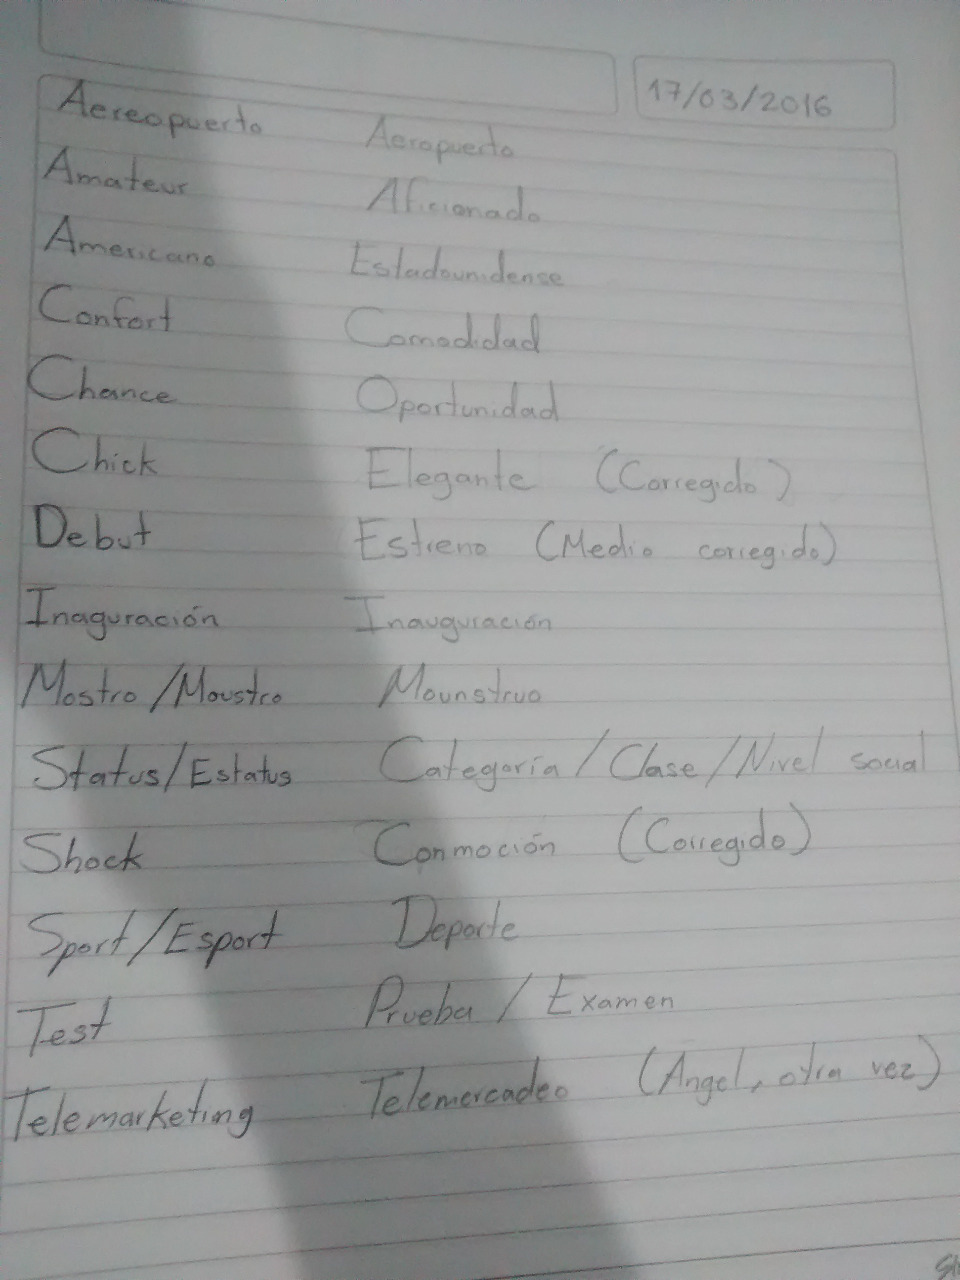 17/03/2016
Aereopuerto Aeropuerto
Amateur Aficionado
Americano Estadounidense
Confort Comodidad
Chance Oportunidad
Chick Elegante (Corregido)
Debut Estreno (Medio corregido)
Inaguración Inauguración
Mostro/Moustro Mounstruo
Status/Estatus Categoría/Clase/Nivel social
Shock Conmoción (Corregido)
Sport/Esport Deporte
Test Prueba/Examen
Telemarketing Telemercadeo (Angel, otra vez)